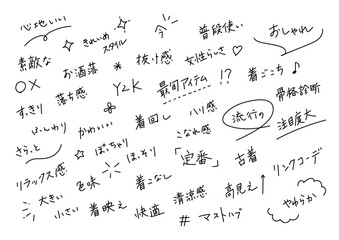 心地いい
きれいめ
スタイル
今
普段使い
おしゃれ
素敵な
お洒落
*
抜け感
女性らしさ♡
○×
落ち感
Y2K
最旬アイテム
!?
着ごこち♪
骨格診断
すっきり
じんわり
かわいい
着回し
ハリ感
こなれ感
流行の
注目度大
さらっと
ぽっちゃり
ほっそり
「定番」
古着
リンクコーデ
リラックス感
色味
着こなし
清涼感
高見え↑
大きい
小さい
着映え
快適
#マストハブ
やわらか